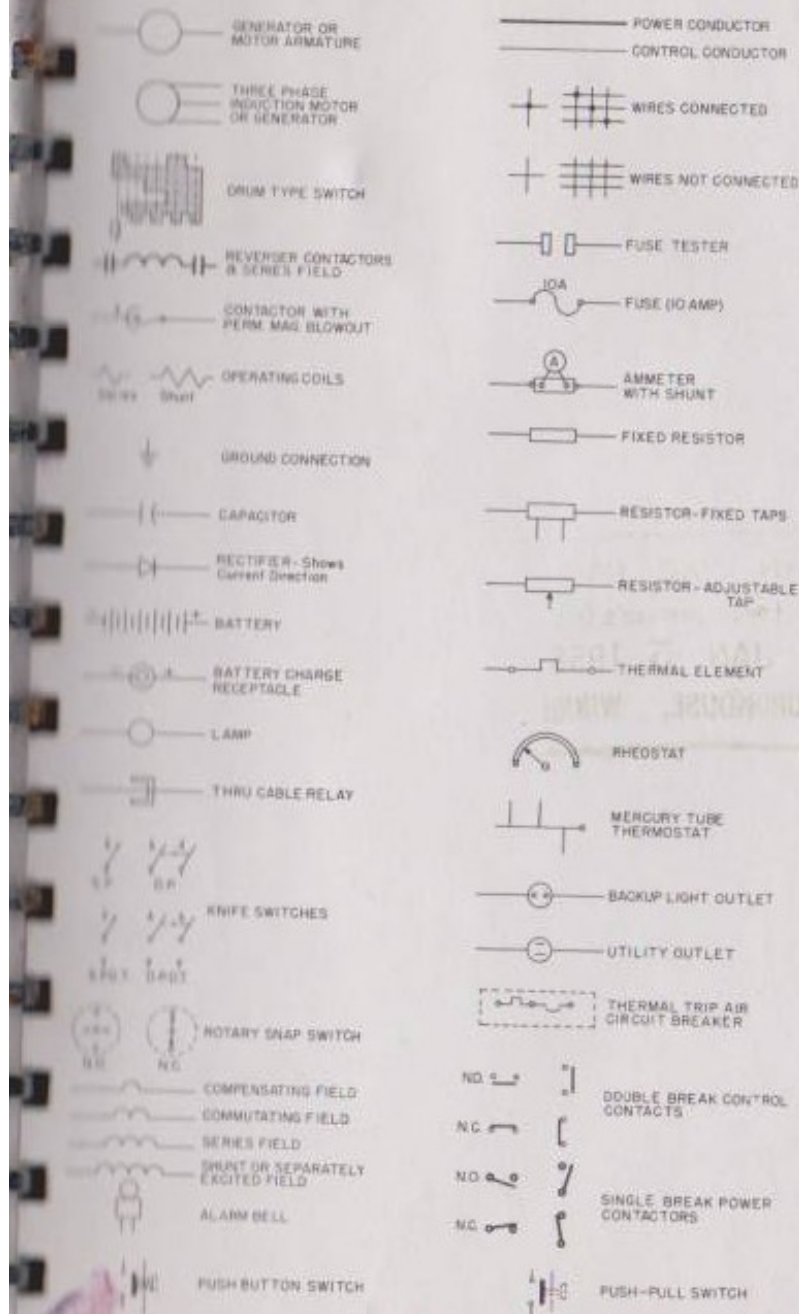 GENERATOR OR
MOTOR ARMATURE
THREE PHASE
INDUCTION MOTOR
OR GENERATOR
DRUM TYPE SWITCH
REVERSER CONTACTORS
& SERIES FIELD
CONTACTOR WITH
PERM. MAG. BLOWOUT
OPERATING COILS
Series Shunt
GROUND CONNECTION
CAPACITOR
RECTIFIER - Shows
Current Direction
BATTERY
BATTERY CHARGE
RECEPTACLE
LAMP
THRU CABLE RELAY
S.P. D.P.
KNIFE SWITCHES
S.P.D.T. D.P.D.T.
ROTARY SNAP SWITCH
N.O. N.C.
COMPENSATING FIELD
COMMUTATING FIELD
SERIES FIELD
SHUNT OR SEPARATELY
EXCITED FIELD
ALARM BELL
PUSH BUTTON SWITCH
POWER CONDUCTOR
CONTROL CONDUCTOR
WIRES CONNECTED
WIRES NOT CONNECTED
FUSE TESTER
10A
FUSE (10 AMP)
A
AMMETER
WITH SHUNT
FIXED RESISTOR
RESISTOR-FIXED TAPS
RESISTOR - ADJUSTABLE
TAP
THERMAL ELEMENT
RHEOSTAT
MERCURY TUBE
THERMOSTAT
BACKUP LIGHT OUTLET
UTILITY OUTLET
THERMAL TRIP AIR
CIRCUIT BREAKER
N.O.
DOUBLE BREAK CONTROL
CONTACTS
N.C.
N.O.
SINGLE BREAK POWER
CONTACTORS
N.C.
PUSH-PULL SWITCH